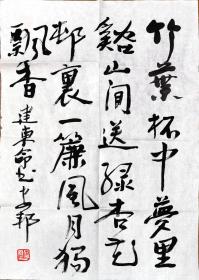 竹葉杯中夢里
谿山間送緑杏花
邨裏一簾風月獨
飄香 建東命書 安邦